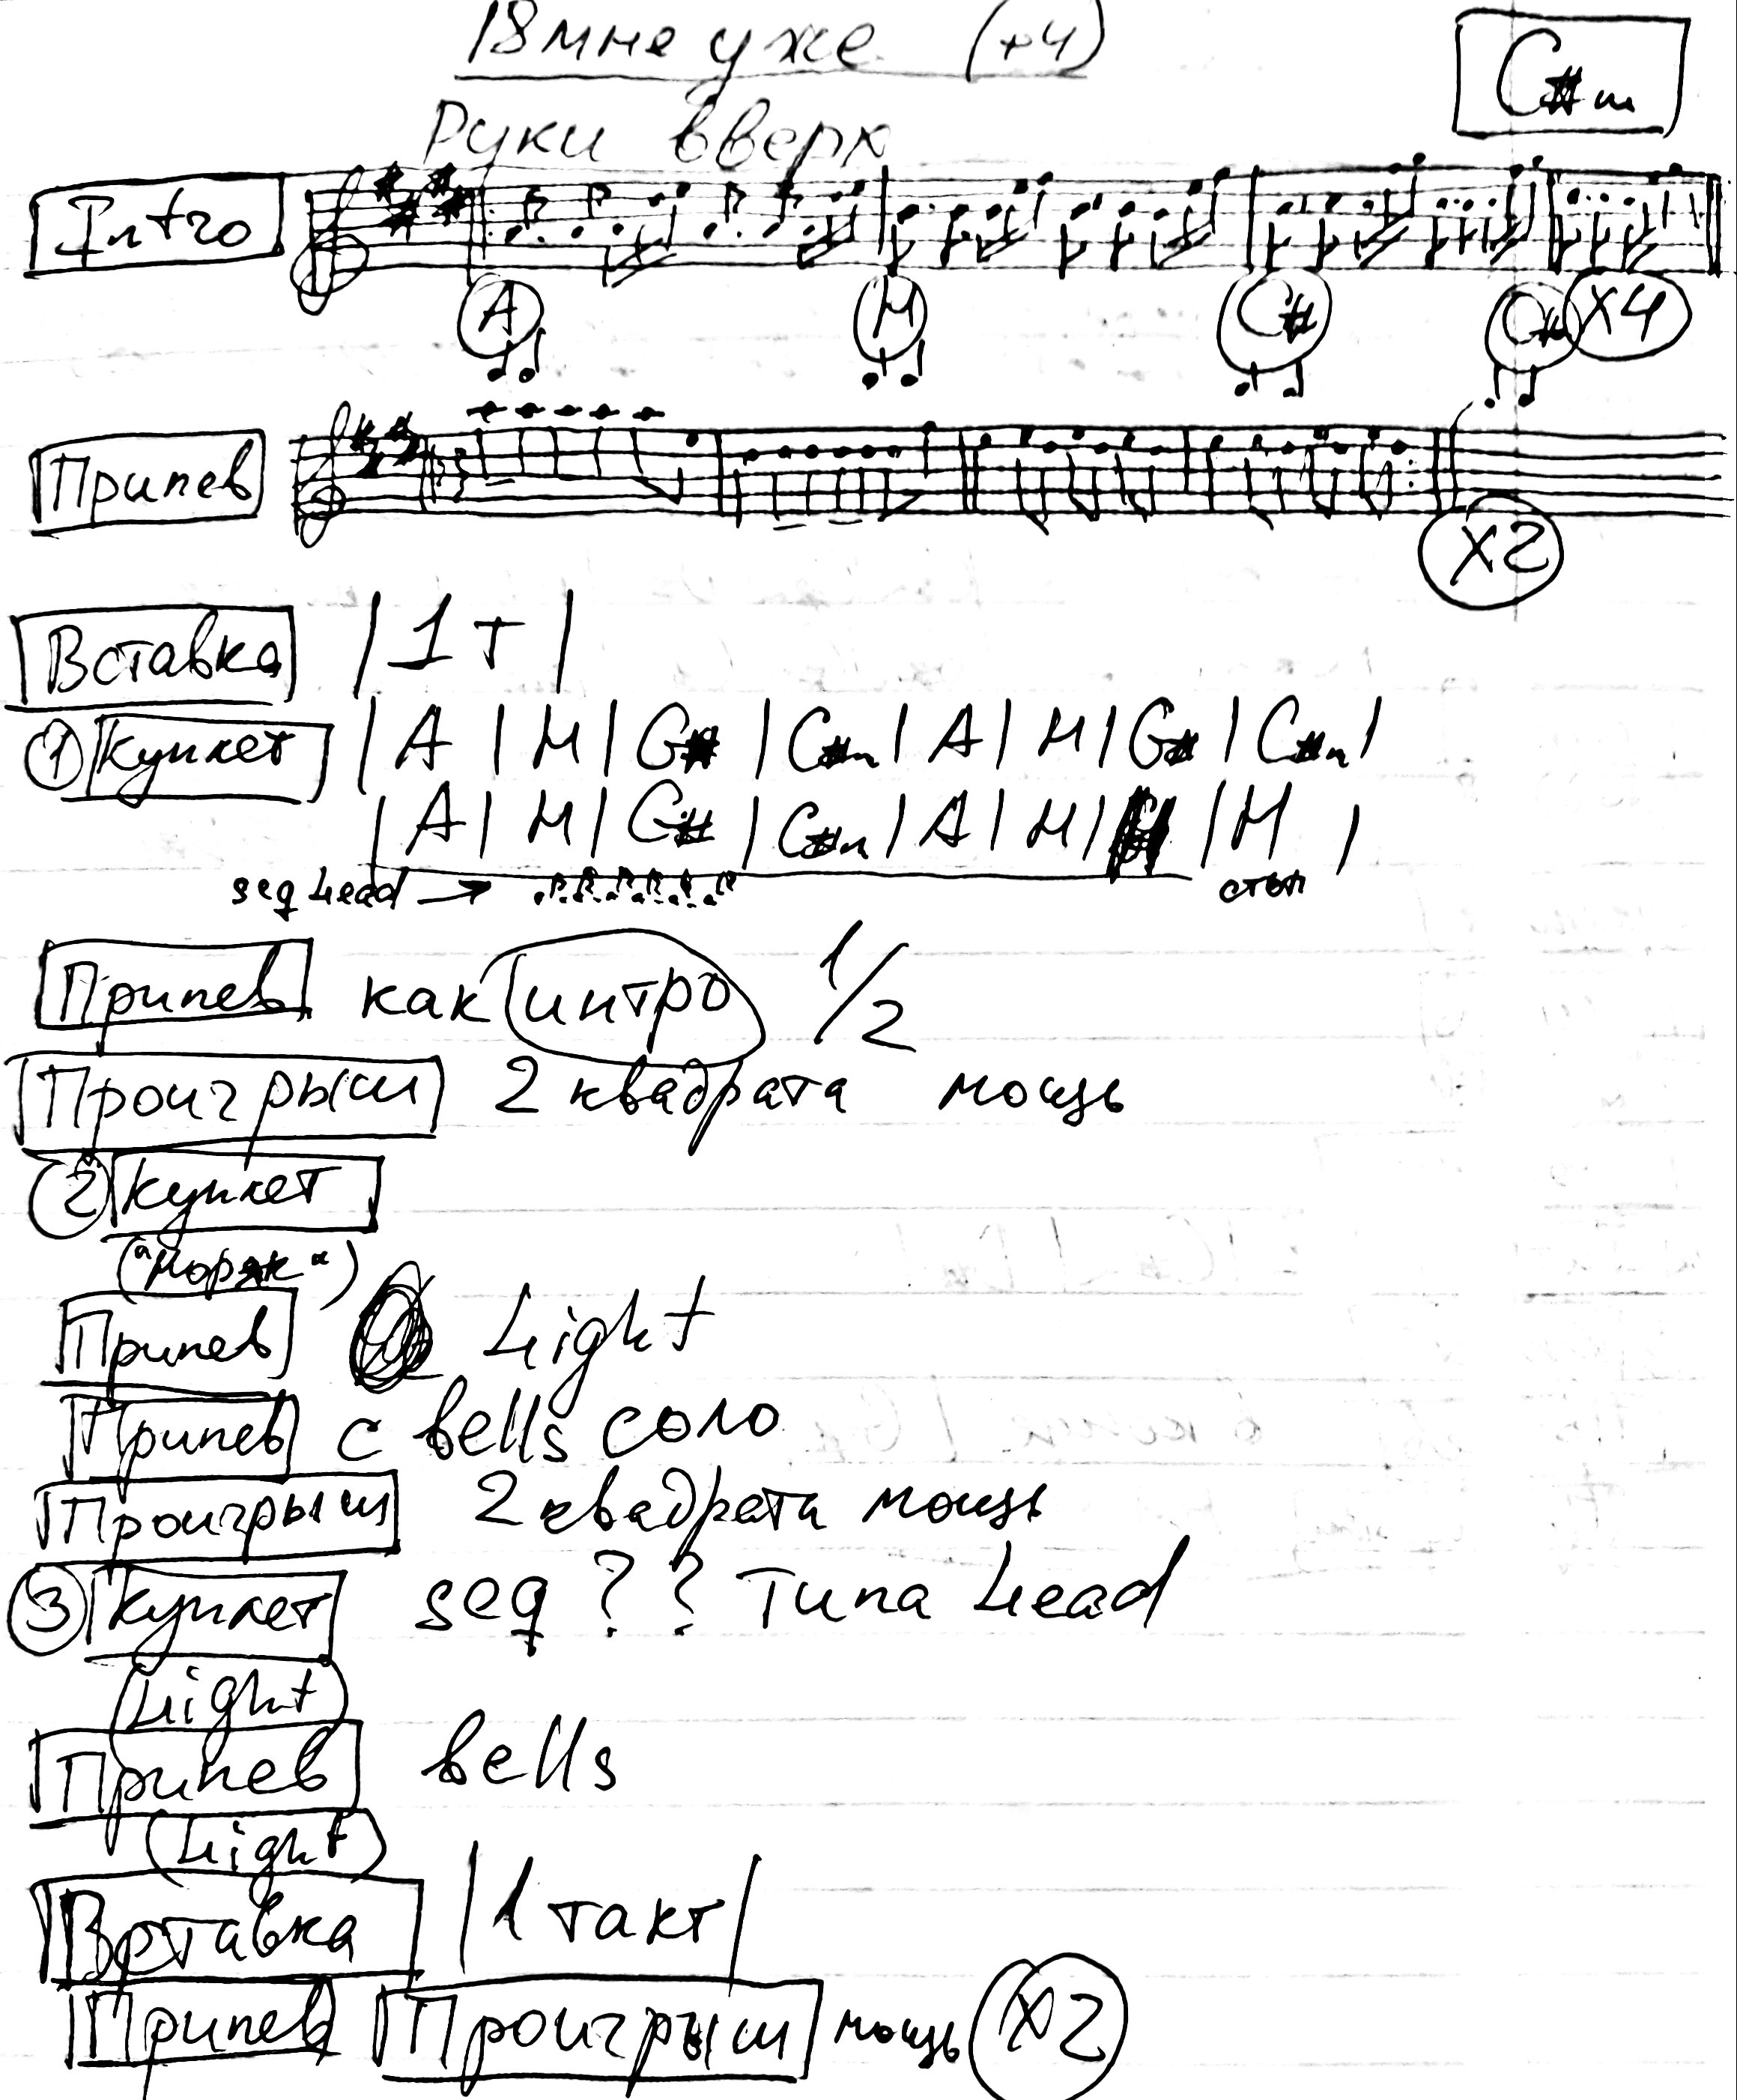 18 мне уже (+4)
C#m
Руки вверх
Intro
A H C# C# X4
Припев
X2
Вставка | 1 т |
① Куплет | A | H | G# | C#m | A | H | G# | C#m |
| A | H | G# | C#m | A | H | | H |
seq Lead → стоп
Припев как интро 1/2
Проигрыш 2 квадрата мощь
② Куплет
("моряк")
Припев Light
Припев с bells соло
Проигрыш 2 квадрата мощь
③ Куплет seq ? ? типа Lead
(Light)
Припев bells
(Light)
Вставка | 1 такт |
Припев Проигрыш мощь X2